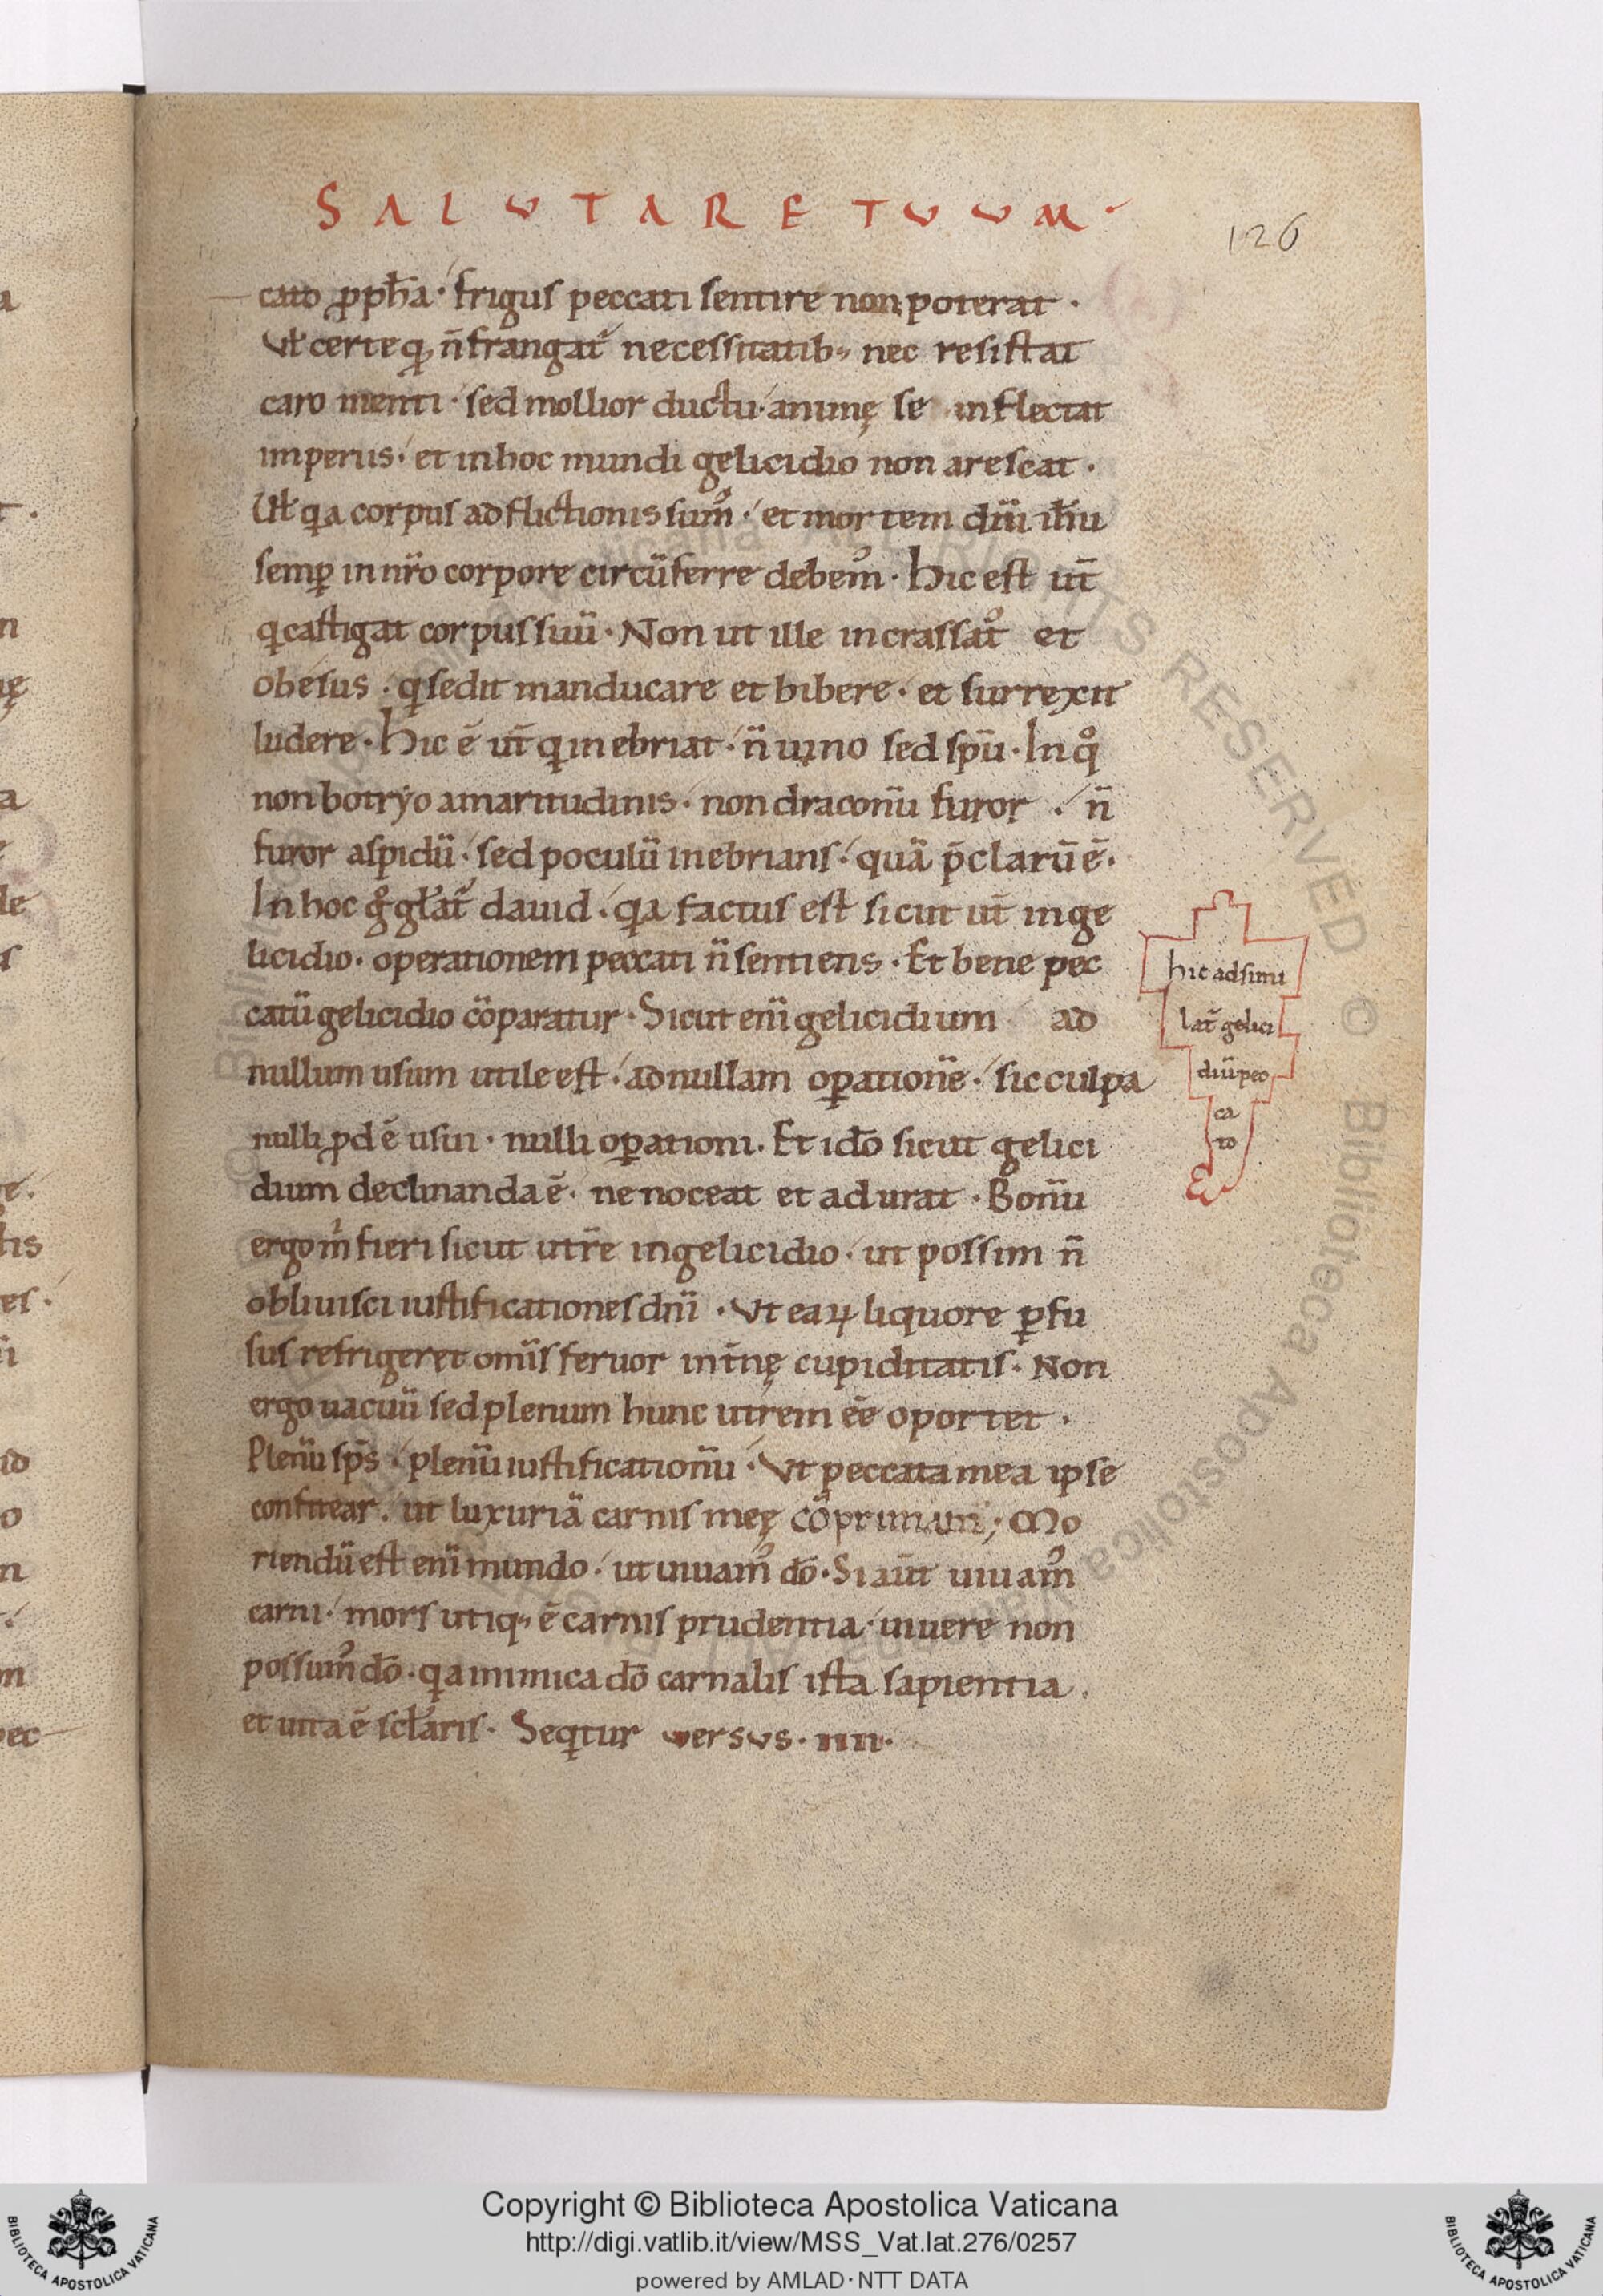 SALUTARE TUUM.
126
cato ꝓph̅a. frigus peccati sentire non poterat.
Vl̅ certe q; n̅ frangat᷑ necessitatib; nec resistat
caro menti. sed mollior ductu. animę se inflectat
imperiis. et in hoc mundi gelicidio non arescat.
Vl̅ q̅a corpus adflictionis sum᷒. et mortem dn̅i ih̅u
semꝑ in nr̅o corpore circu̅ferre debem᷒. Hic est ut̅
q̅ castigat corpus suu̅. Non ut ille incrassat᷒ et
obesus. q̅ sedit manducare et bibere. et surrexit
ludere. Hic e̅ ut̅ q̅ inebriat. n̅ uino sed sp̅u. In qͦ
non botryo amaritudinis. non draconu̅ furor. n̅
furor aspidu̅. sed poculu̅ inebrians. qua̅ p̅claru̅ e̅.
In hoc gͦ gl̅at᷑ dauid. q̅a factus est sicut ut̅ in ge
licidio. operationem peccati n̅ sentiens. Et bene pec
catu̅ gelicidio co̅paratur. Sicut eni̅ gelicidium ad
nullum usum utile est. ad nullam oꝑatione̅. sic culpa
nulli ꝓd e̅ usui. nulli oꝑationi. Et id̅o sicut gelici
dium declinanda e̅. ne noceat et adurat. Bonu̅
ergo mͥ fieri sicut utre̅ in gelicidio. ut possim n̅
obliuisci iustificationes dn̅i. Vt eaꝝ liquore ꝑfu
sus refrigeret omi̅s feruor int̅nę cupiditatis. Non
ergo uacuu̅ sed plenum hunc utrem e̅e oportet.
Plenu̅ sp̅s. plenu̅ iustificationu̅. Vt peccata mea ipse
confitear. ut luxuria̅ carnis meę co̅primam; Mo
riendu̅ est eni̅ mundo. ut uiuam᷒ do̅. Si aut̅ uiuam᷒
carni. mors utiq; e̅ carnis prudentia. uiuere non
possum᷒ do̅. q̅a inimica do̅ carnalis ista sapientia.
et uita e̅ scl̅aris. Seq̅tur versvs. IIII.
hic adsimi
lat᷑ gelici
diu̅ pec
ca
to
Copyright © Biblioteca Apostolica Vaticana
http://digi.vatlib.it/view/MSS_Vat.lat.276/0257
powered by AMLAD·NTT DATA